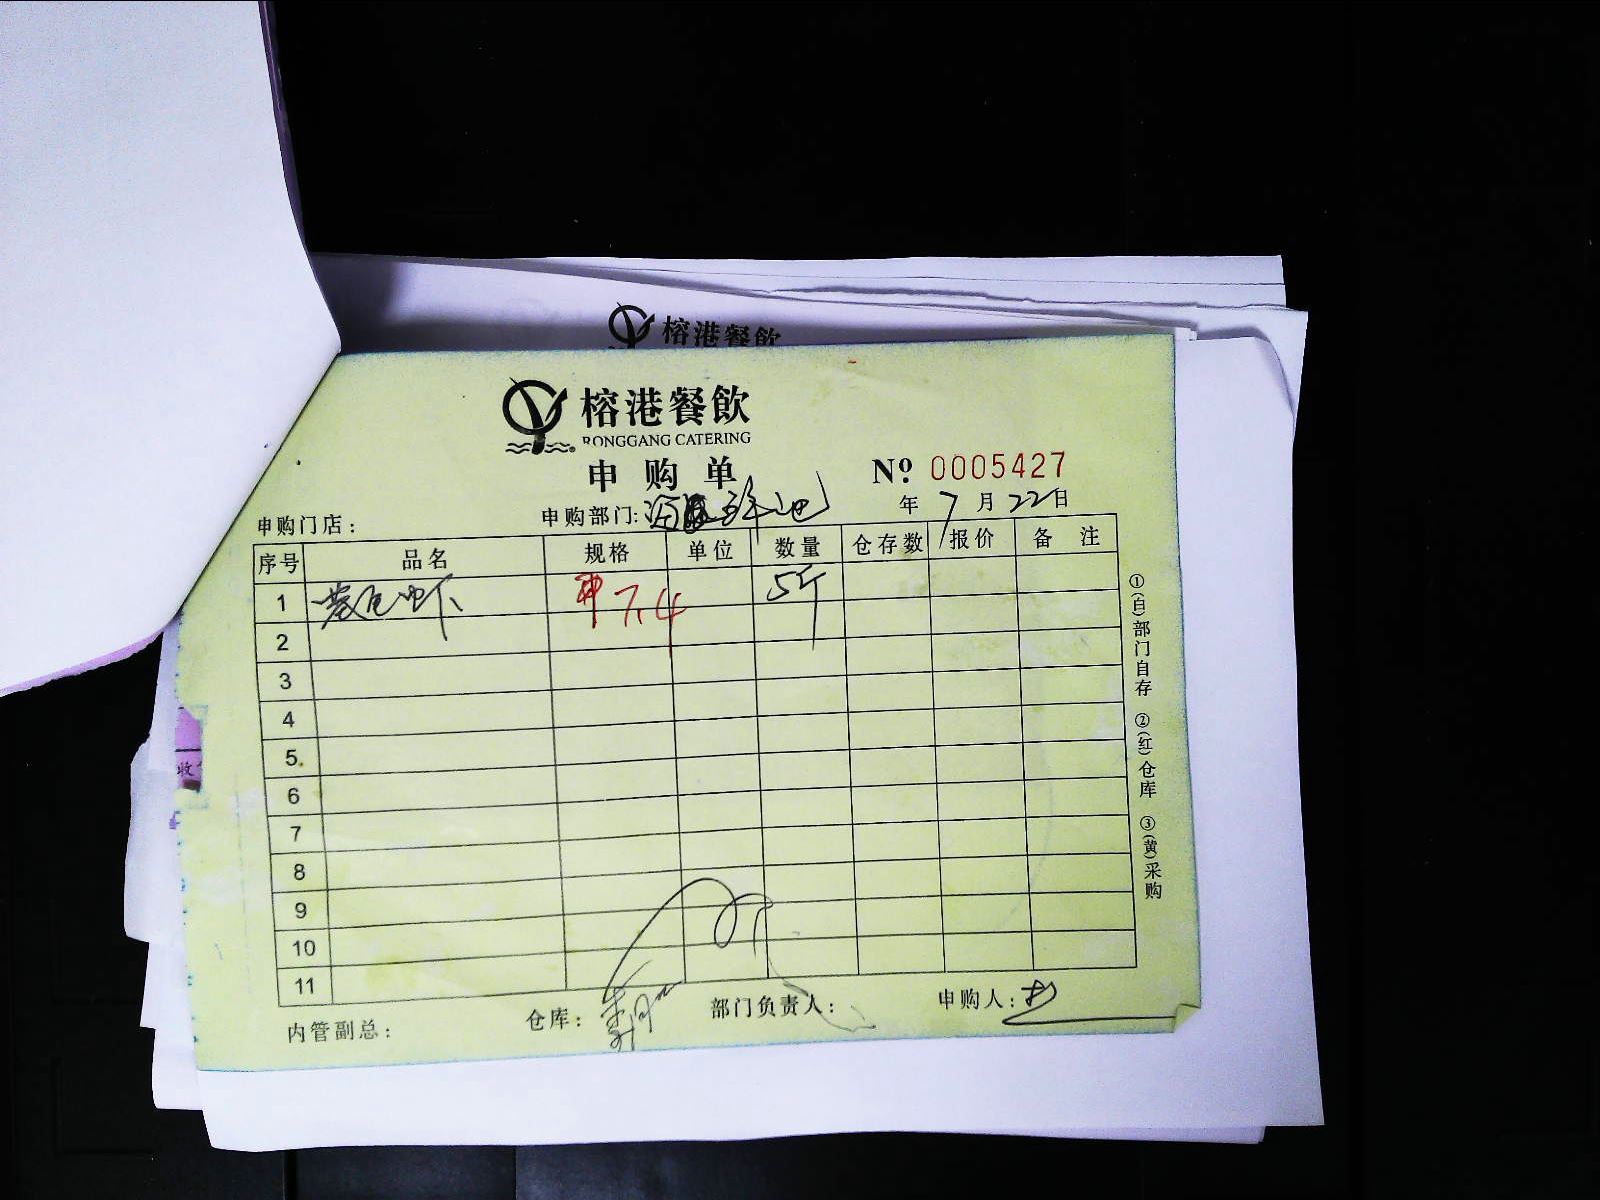 榕港餐飲
榕港餐飲
RONGGANG CATERING
申购单
Nº 0005427
申购门店：
申购部门:
年 7 月 22 日
序号 品名 规格 单位 数量 仓存数 报价 备注
1 7.4 5斤
2
3
4
5
6
7
8
9
10
11
内管副总：
仓库：
部门负责人：
申购人：
①(白)部门自存 ②(红)仓库 ③(黄)采购
收